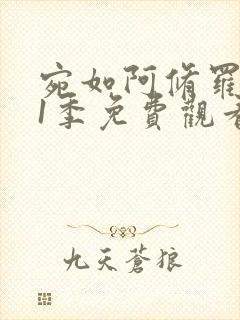 宛如阿脩羅
1季免費觀看
九天蒼狼